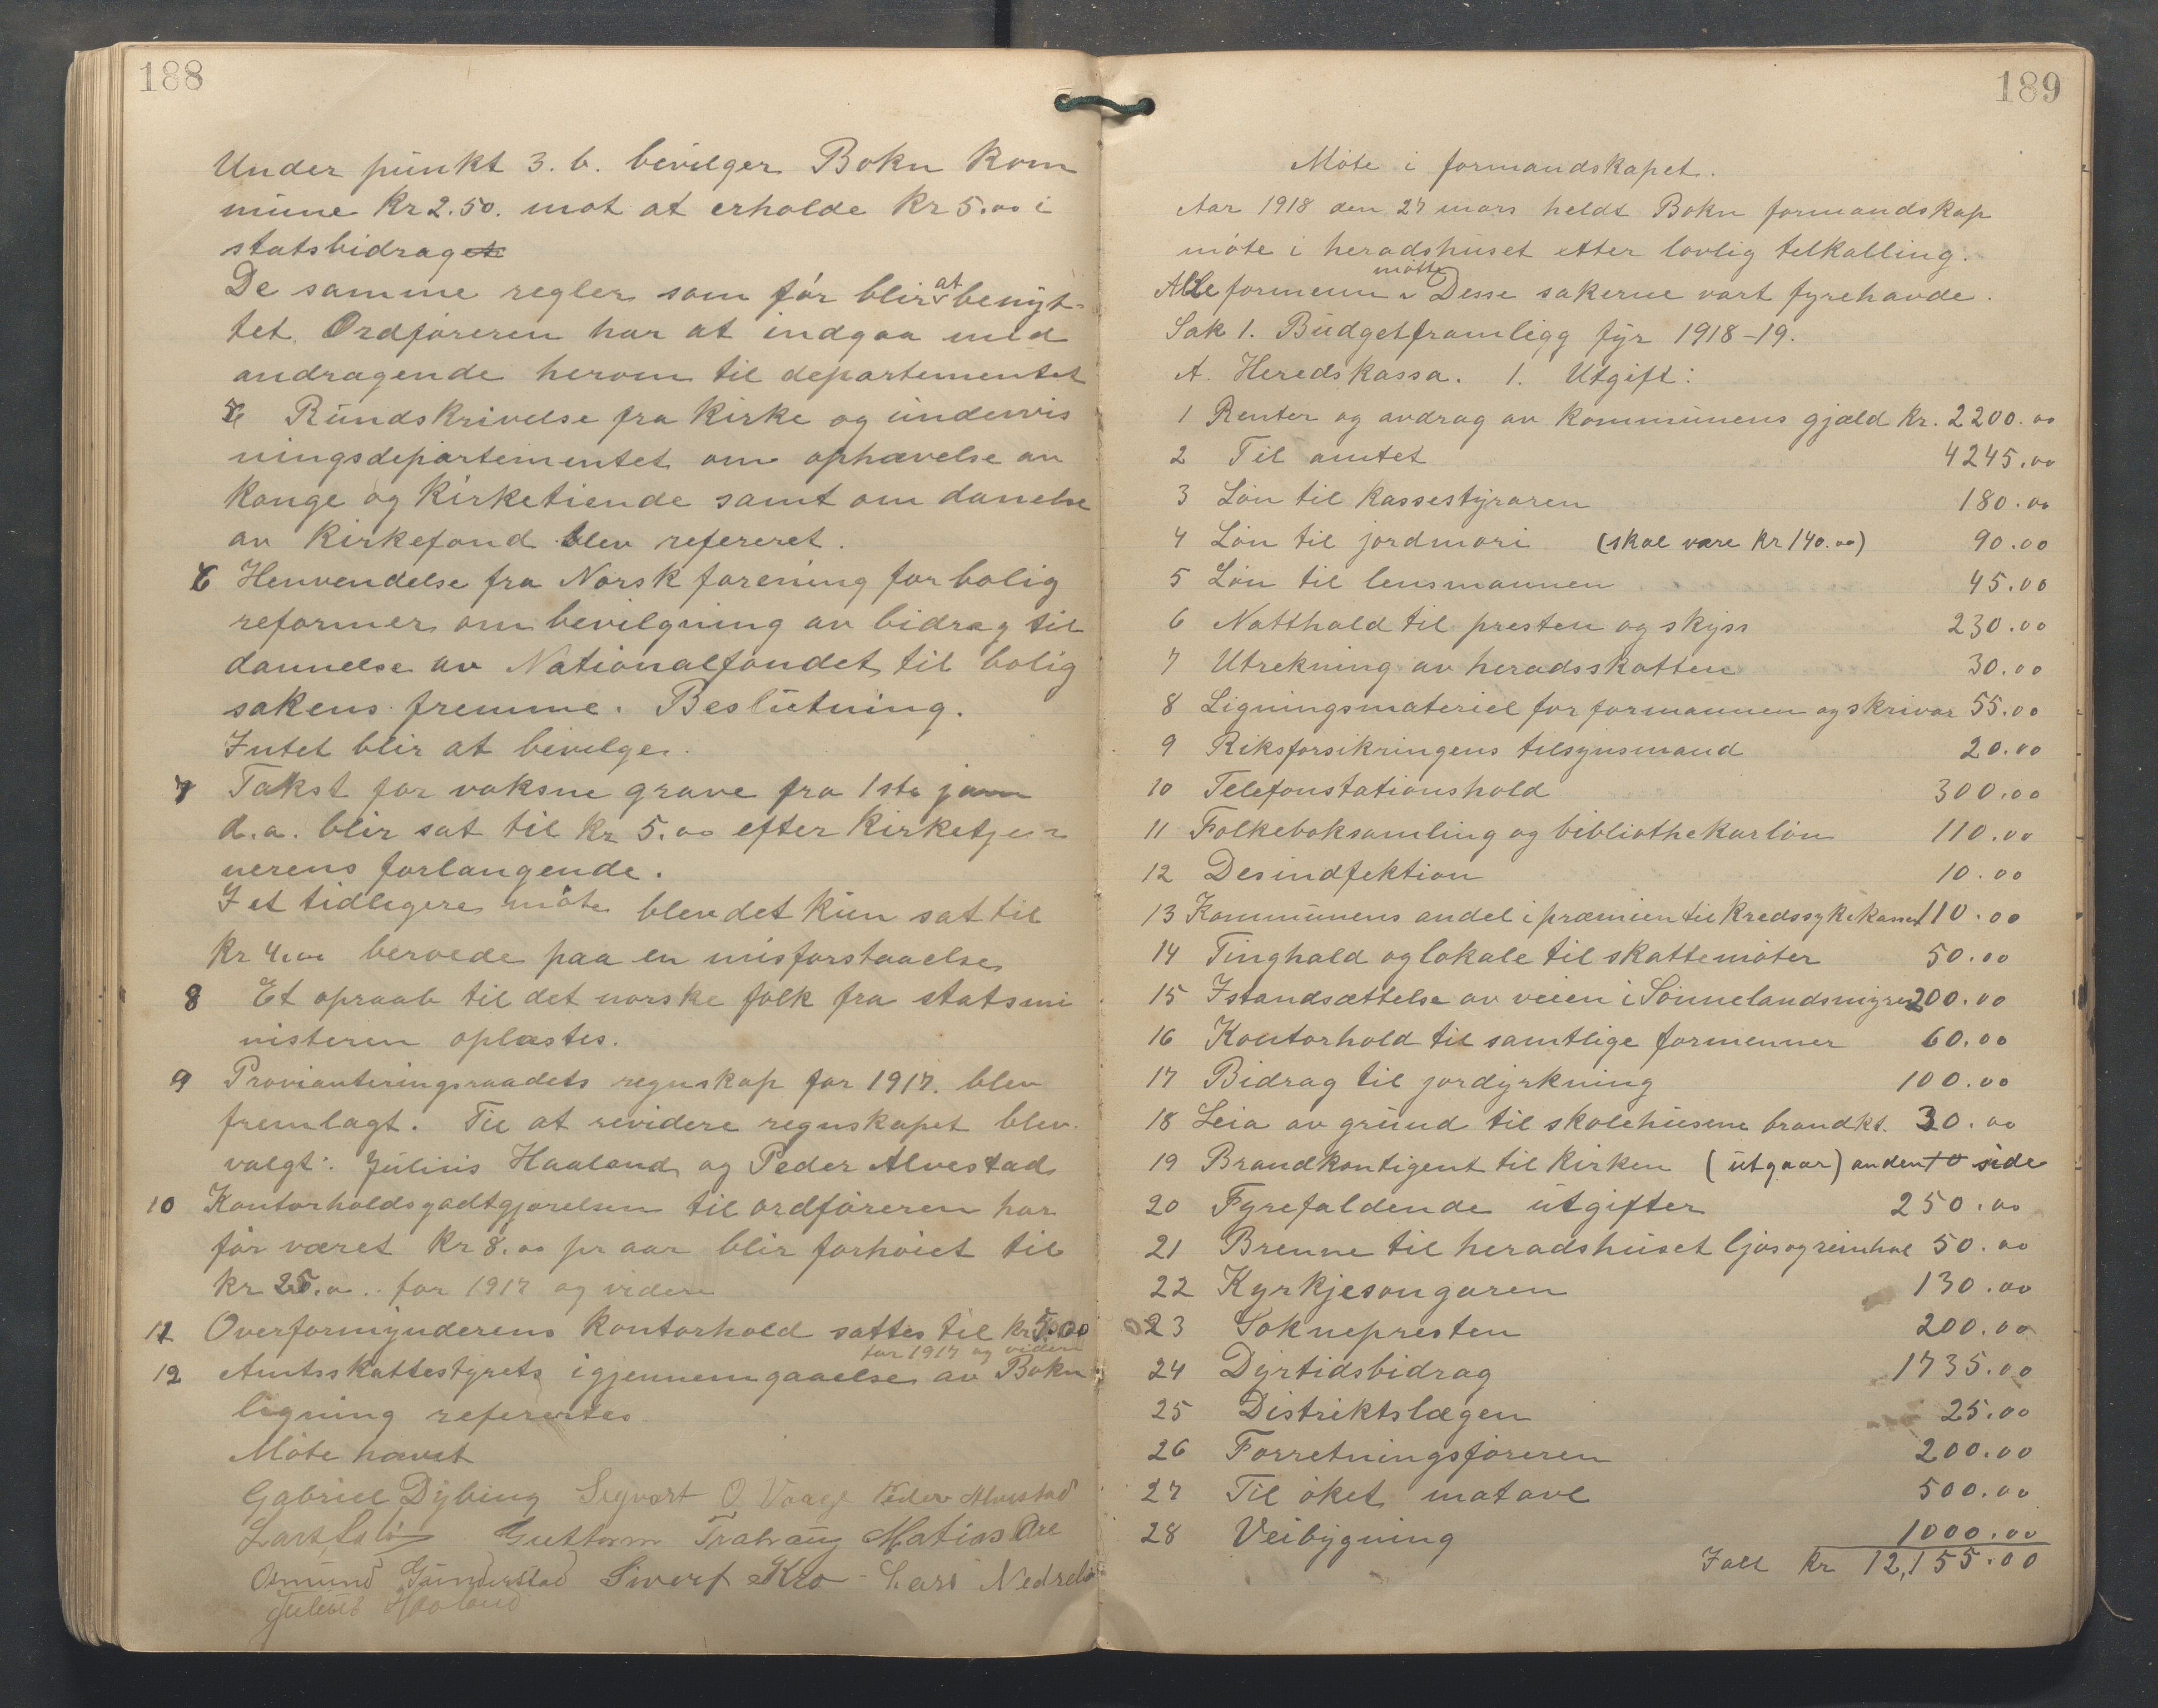 188
Under punkt 3. b. bevilger Bokn kom
mune Kr 2.50. mot at erholde Kr 5.00 i
statsbidraget
De samme regler som før blir at benyt-
tet. Ordføreren har at indgaa med
andragende herom til departementet
Rundskrivelse fra Kirke og undervis
ningsdepartementet om ophævelse av
Konge og Kirketiende samt om danelse
av Kirkefond blev refereret.
6 Henvendelse fra Norsk forening for bolig
reformer om bevilgning av bidrag til
dannelse av Nationalfondet til bolig
sakens fremme. Beslutning.
Intet blir at bevilge.
7 Takst for voksne grave fra 1ste jan
d.a. blir sat til Kr 5.00 efter Kirketje-
nerens forlangende.
I et tidligere møte blev det kun sat til
Kr 4.00 beroede paa en misforstaaelse
8 Et opraab til det norske folk fra statsmi
nisteren oplæstes.
9 Provianteringsraadets regnskap for 1917. blev
fremlagt. Til at revidere regnskapet blev
valgt: Julius Haaland og Peder Alvestad
10 Kontorholdsgodtgjørelsen til ordføreren har
før været Kr 8.00 pr aar blir forhøiet til
Kr 25.00. for 1917 og videre
11 Overformynderens Kontorhold sattes til Kr 5.00
for 1917 og videre
12 Amtsskattestyrets igjennemgaaelse av Bokn
ligning refertes
Møte hævet
Gabriel Dybing Segvart O Vaage Peder Alvestad
Guttorm Trahaug Matias Are
Osmund Gunnerstad Sivert Kro Lars Nedrebø
Julius Haaland
189
Møte i formandskapet.
Aar 1918 den 27 mars heldt Bokn formandskap
møte i heradshuset etter lovlig tilkalling.
Alle formenn møtte Desse sakerne vart fyrehavde.
Sak 1. Budgetframligg fyr 1918-19.
A. Heredskassa. 1. Utgift:
1 Renter og avdrag av Kommunens gjæld Kr. 2200.00
2 Til amtet 4245.00
3 Løn til Kassestyraren 180.00
4 Løn til jordmori (skal være Kr 140.00) 90.00
5 Løn til lensmannen 45.00
6 Natthold til presten og skyss 230.00
7 Utrekning av heradsskatten 30.00
8 Ligningsmateriel for formannen og skrivar 55.00
9 Riksforsikringens tilsynsmand 20.00
10 Telefonstationshold 300.00
11 Folkeboksamling og bibliothekarløn 110.00
12 Desindfektion 10.00
13 Kommunens andel i præmien til Kredssykekassen 110.00
14 Tinghald og lokale til skattemøter 50.00
15 Istandsættelse av veien i Sønnelandsmyren 200.00
16 Kontorhold til samtlige formenner 60.00
17 Bidrag til jordyrkning 100.00
18 Leia av grund til skolehusene brandkt. 30.00
19 Brandkontigent til Kirken (utgaar) anden side
20 Fyrefaldende utgifter 250.00
21 Brenne til heradshuset ljos og reinhol 50.00
22 Kyrkjesongaren 130.00
23 Soknepresten 200.00
24 Dyrtidsbidrag 1735.00
25 Distriktslægen 25.00
26 Forretningsføreren 200.00
27 Til øket matavl 500.00
28 Veibygning 1000.00
Ialt Kr 12,155.00